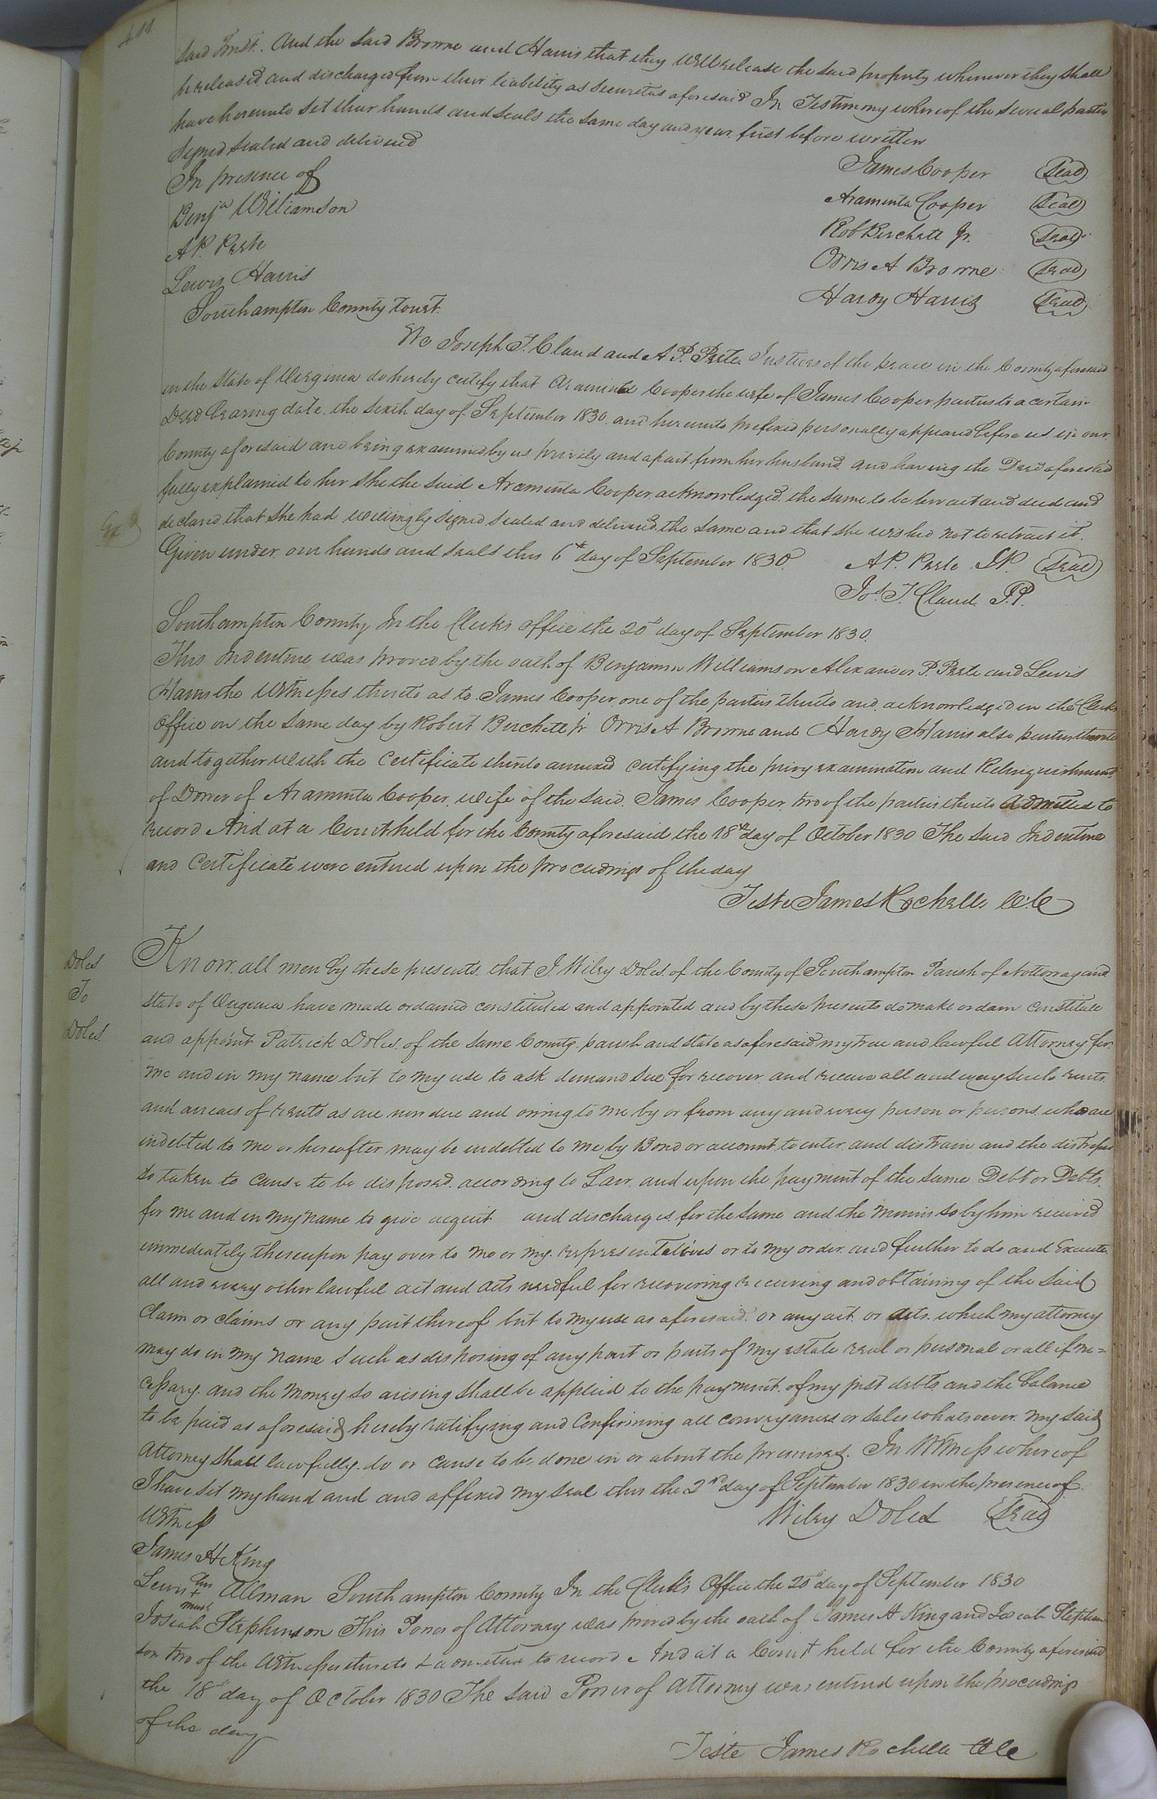 said Trust. And the said Browne and Harris that they will release the said property whenever they shall
be released and discharged from their liability as securities aforesaid In Testimony whereof the several parties
have hereunto set their hands and seals the same day and year first before written
Signed sealed and delivered
In presence of
James Cooper Seal
Benja Williamson
Araminta Cooper Seal
A P. Peete
Rob Birchett Jr. Seal
Lewis Harris
Orris A Browne Seal
Southampton County Court.
Hardy Harris Seal
We Joseph T. Claud and A. P. Peete Justices of the peace in the County aforesaid
in the State of Virginia do hereby certify that Araminta Cooper the wife of James Cooper parties to a certain
Deed bearing date the sixth day of September 1830. and hereunto prefixed personally appeared before us in our
County aforesaid and being examined by us privily and apart from her husband and having the Deed aforesaid
fully explained to her She the said Araminta Cooper acknowledged the same to be her act and deed and
declared that she had willingly signed sealed and delivered the same and that she wished not to retract it.
Exd
Given under our hands and seals this 6th day of September 1830. A P. Peete J.P. Seal
Jos. T. Claud J.P.
Southampton County In the Clerk's office the 20th day of September 1830.
This Indenture was proved by the oath of Benjamin Williamson Alexander P. Peete and Lewis
Harris the witnesses thereto as to James Cooper one of the parties thereto and acknowledged in the Clerks
Office on the same day by Robert Birchett Jr Orris A Browne and Hardy Harris also parties thereto
and together with the certificate thereto annexed certifying the privy examination and Relinquishment
of Dower of Araminta Cooper wife of the said James Cooper two of the parties thereto admitted to
record And at a Court held for the County aforesaid the 18th day of October 1830 The said Indenture
and Certificate were entered upon the proceedings of the day
Teste James Rochelle C.C
Doles
To
Doles
Know all men by these presents that I Wiley Doles of the County of Southampton Parish of Nottoway and
State of Virginia have made ordained constituted and appointed and by these presents do make ordain constitute
and appoint Patrick Doles of the same County parish and State as aforesaid my true and lawful Attorney for
me and in my name but to my use to ask demand sue for recover and receive all and every such rents
and arrears of rents as are now due and owing to me by or from any and every person or persons who are
indebted to me or hereafter may be indebted to me by Bond or account, to enter and distrain and the distresses
so taken to cause to be disposed according to Law and upon the payment of the same Debt or Debts
for me and in my name to give acquit and discharges for the same and the monies so by him received
immediately thereupon pay over to me or my representatives or to my order and further to do and Execute
all and every other lawful act and acts needful for recovering receiving and obtaining of the said
Claim or claims or any part thereof but to my use as aforesaid or any act or acts which my attorney
may do in my name such as disposing of any part or parts of my estate real or personal or all if ne=
cessary and the money so arising shall be applied to the payment of my just debts and the balance
to be paid as aforesaid hereby ratifying and Confirming all conveyances or sales whatsoever my said
Attorney shall lawfully do or cause to be done in or about the premises. In Witness whereof
I have set my hand and and affixed my seal this the 2nd day of September 1830 in the presence of
Witness Wiley Doles Seal
James H King
Lewis his + mark Allman Southampton County In the Clerk's Office the 20th day of September 1830
Josiah Stephenson This Power of Attorney was proved by the oath of James H King and Josiah Stephen
son two of the witnesses thereto & admitted to record And at a Court held for the County aforesaid
the 18th day of October 1830 The said Power of Attorney was entered upon the proceedings
of the day
Teste James Rochelle C.C